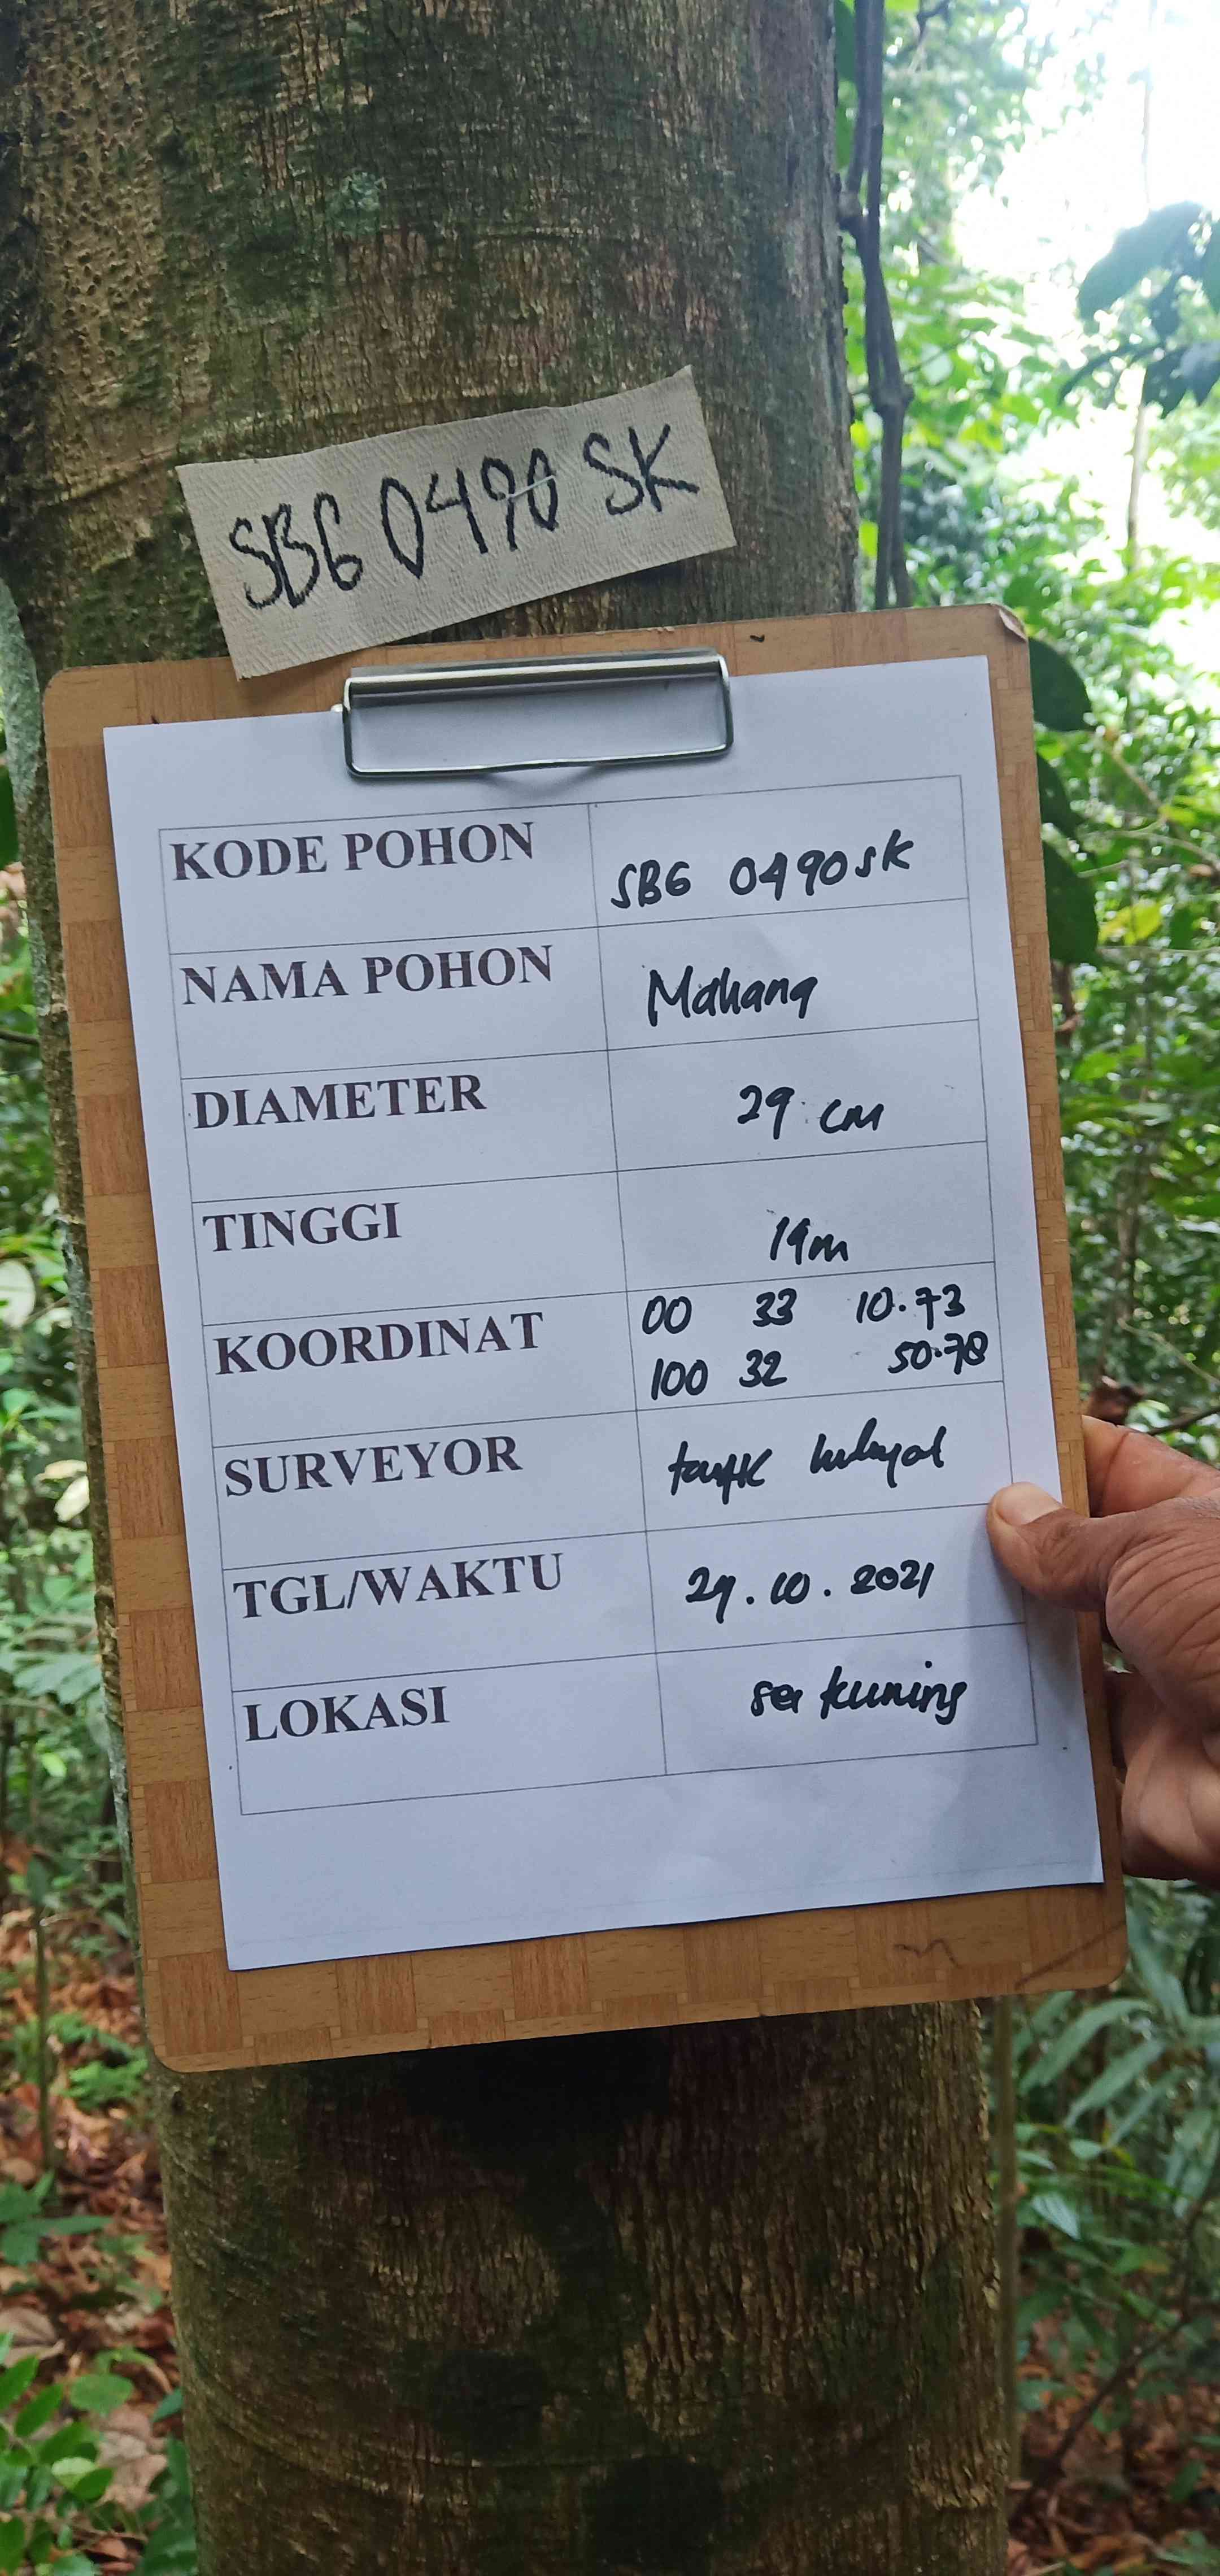 SBG 0490 SK
KODE POHON SBG 0490 SK
NAMA POHON Mahang
DIAMETER 29 cm
TINGGI 19m
KOORDINAT 00 33 10.73
100 32 50.78
SURVEYOR taufik hidayat
TGL/WAKTU 29.10.2021
LOKASI sei kuning